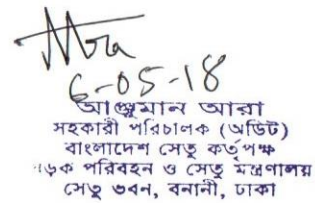 6-05-18
আঞ্জুমান আরা
সহকারী পরিচালক (অডিট)
বাংলাদেশ সেতু কর্তৃপক্ষ
ড়ক পরিবহন ও সেতু মন্ত্রণালয়
সেতু ভবন, বনানী, ঢাকা